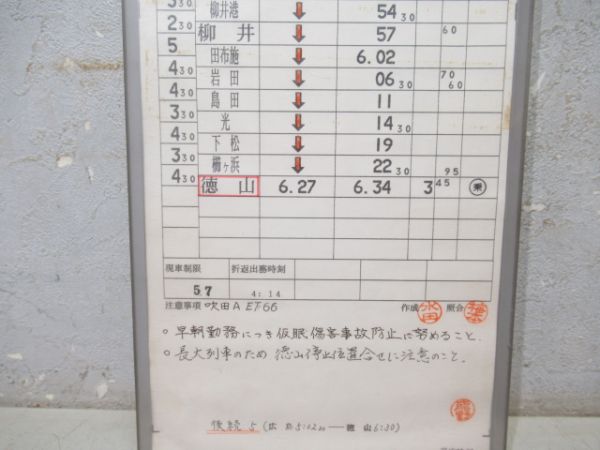 3 30 柳井港 ↓ 54 30
2 30 柳井 ↓ 57 60
5 田布施 ↓ 6.02
4 30 岩田 ↓ 06 30 70 60
4 30 島田 ↓ 11
3 30 光 ↓ 14 30
4 30 下松 ↓ 19
3 30 櫛ヶ浜 ↓ 22 30 95
4 30 徳山 6.27 6.34 3 45 乗
現車制限 折返出務時刻
57 4:14
注意事項 吹田A EF66 作成 照合
○ 早朝勤務につき仮眠、傷害事故防止に努めること.
○ 長大列車のため 徳山停止位置合せに注意のこと.
後続 5 (広島5:02 — 徳山6:30)